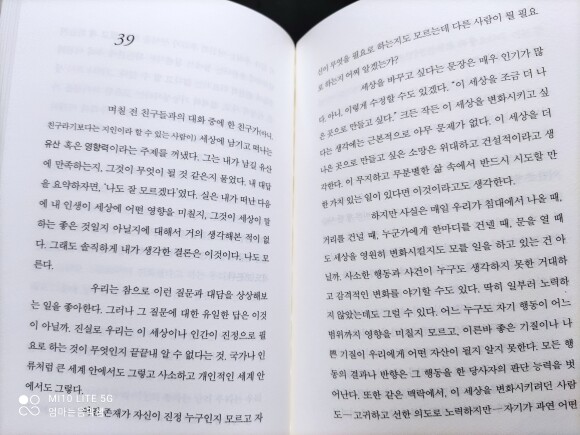 39
며칠 전 친구들과의 대화 중에 한 친구가(아니,
친구라기보다는 지인이라 할 수 있는 사람이) 세상에 남기고 떠나는
유산 혹은 영향력이라는 주제를 꺼냈다. 그는 내가 남길 유산
에 만족하는지, 그것이 무엇이 될 것 같은지 물었다. 내 대답
을 요약하자면, '나도 잘 모르겠다'였다. 실은 내가 떠난 다음
에 내 인생이 세상에 어떤 영향을 미칠지, 그것이 세상이 말
하는 좋은 것일지 아닐지에 대해서 거의 생각해본 적이 없
다. 그래도 솔직하게 내가 생각한 결론은 이것이다. 나도 모
른다.
우리는 참으로 이런 질문과 대답을 상상해보
는 일을 좋아한다. 그러나 그 질문에 대한 유일한 답은 이것
이 아닐까. 진실로 우리는 이 세상이나 인간이 진정으로 필
요로 하는 것이 무엇인지 끝끝내 알 수 없다는 것. 국가나 인
류처럼 큰 세계 안에서도 그렇고 사소하고 개인적인 세계 안
에서도 그렇다.
존재가 자신이 진정 누구인지 모르고 자
신이 무엇을 필요로 하는지도 모르는데 다른 사람이 뭘 필요
로 하는지 어찌 알겠는가?
세상을 바꾸고 싶다는 문장은 매우 인기가 많
다. 아니, 이렇게 수정할 수도 있겠다. "이 세상을 조금 더 나
은 곳으로 만들고 싶다." 크든 작든 이 세상을 변화시키고 싶
다는 생각에는 근본적으로 아무 문제가 없다. 이 세상을 더
나은 곳으로 만들고 싶은 소망은 위대하고 건설적이라고 생
각한다. 이 무지하고 무분별한 삶 속에서 반드시 시도할 만
한 가치 있는 일이 있다면 이것이라고도 생각한다.
하지만 사실은 매일 우리가 침대에서 나올 때,
거리를 건널 때, 누군가에게 한마디를 건넬 때, 문을 열 때
도 세상을 영원히 변화시킬지도 모를 일을 하고 있는 건 아
닐까. 사소한 행동과 사건이 누구도 생각하지 못한 거대하
고 감격적인 변화를 야기할 수도 있다. 딱히 일부러 노력하
지 않았는데도 그럴 수 있다. 어느 누구도 자기 행동이 어느
범위까지 영향을 미치지 모르고, 이른바 좋은 기질이나 나
쁜 기질이 우리에게 어떤 자산이 될지 알지 못한다. 모든 행
동의 결과나 반향은 그 행동을 한 당사자의 판단 능력을 벗
어난다. 또한 같은 맥락에서, 이 세상을 변화시키려던 사람
도—고귀하고 선한 의도로 노력하지만—자기가 과연 어떤
MI 10 LITE 5G